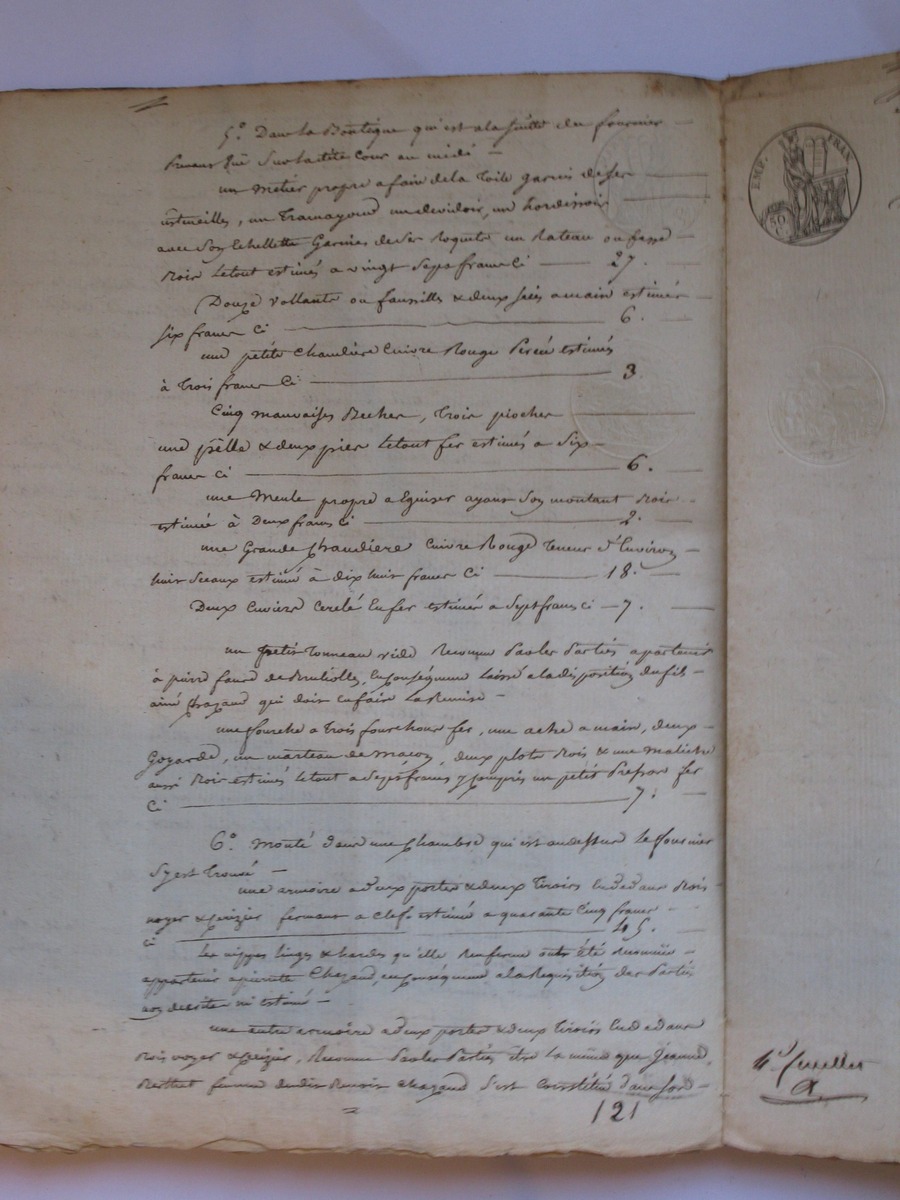 5.° Dans la Boutique qui est a la suitte du fournier
prenant jour sur la dite Cour au midi —
un metier propre a faire de la Toile garnis de ses
ustencilles, un Tramayoud un devidoir, un hordissoir
avec son Echellette Garnies de ses Roquets un Rateau ou
Bois le tout estimés a vingt Sept francs Ci — 27.
Douze vollants ou faussilles & deux scies a main estimés
six francs Ci — 6.
une petite Chaudière Cuivre Rouge Percée estimés
à Trois francs Ci — 3
Cinq mauvaises Beches, Trois pioches
une pèlle & deux pier le tout fer estimés a Six
francs Ci — 6.
une Meule propre a Eguiser ayant son montant Bois
estimée à Deux francs Ci — 2.
une Grande Chaudiere Cuivre Rouge Teneur d'Environ
huit Sceaux estimé à dix huit francs Ci — 18.
Deux Cuviers Cerclé En fer estimés a Sept francs Ci — 7.
un petit Tonneau vide Reconnu Par les Parties apartenir
à pierre faure de En Conséquence laissé a la disposition du fils
ainé Chazaud qui doit en faire La Remise —
une fourche a Trois fourchons fer, une ache a main, deux
Goyards, un marteau de Maçon, deux plots Bois & une
aussi Bois estimés le tout a Sept francs y Compris un petit Pressoir fer
Ci — 7.
6.° Monté dans une Chambre qui est au dessus Le fournier
S'y est Trouvé —
une armoire a deux portes & deux Tiroirs En dedans Bois
noyer & Cerizier fermant a Clef estimée a quarante Cinq francs
Ci — 45.
Les nippes linges & hardes qu'elle Renferme onts été Reconnües
appartenir a pierrette Chazaud, en Conséquence a la Requisition des Parties
non décrite ni estimé —
une autre armoire a deux portes & deux Tiroirs En dedans
Bois noyer & Ceizier, Reconnue Par les Parties être la même que Jeanne
femme dudit Benoit Chazaud S'est Constitué dans son
121
EMP. FRAN.
50
C.